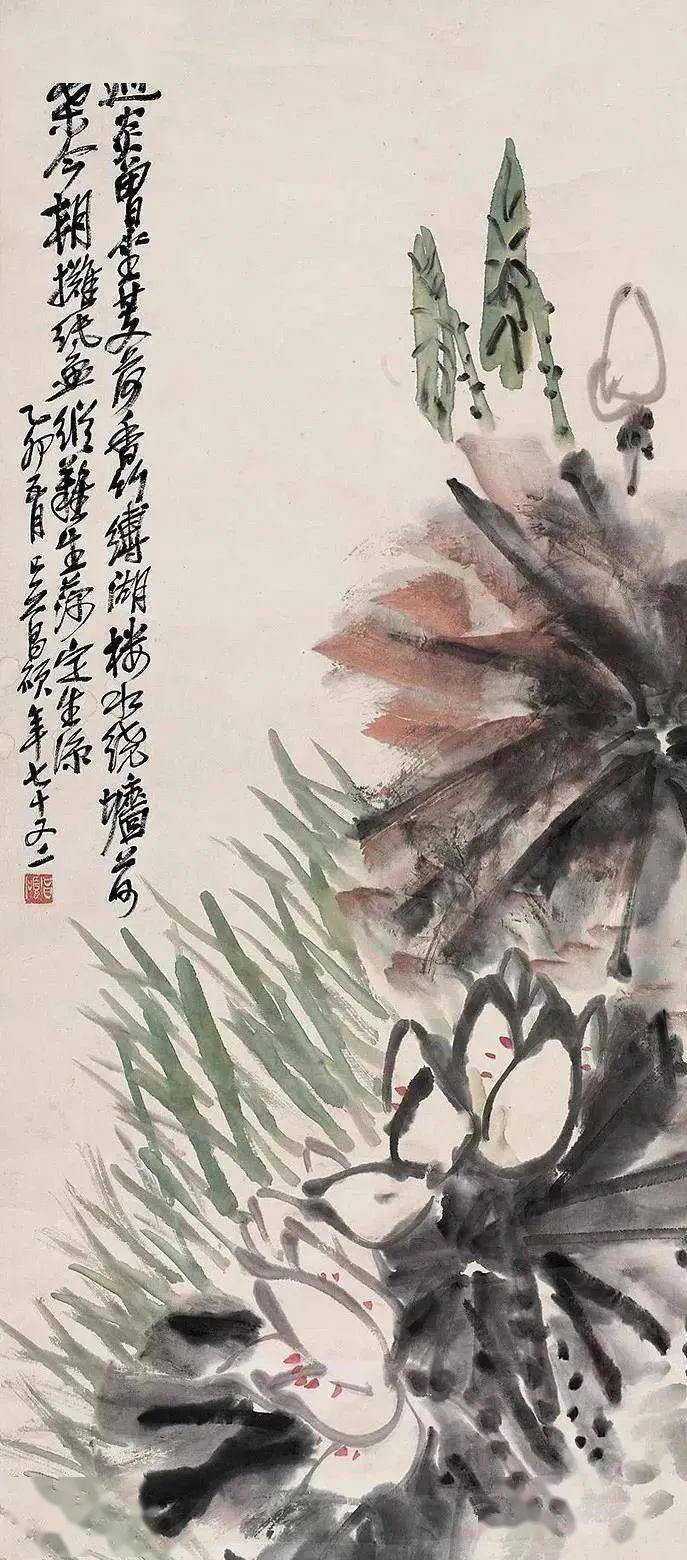 避炎曾坐芰荷香竹縛湖樓水繞墻荷
葉今朝攤紙畫縱難生藕定生涼
乙卯五月吳昌碩年七十又二